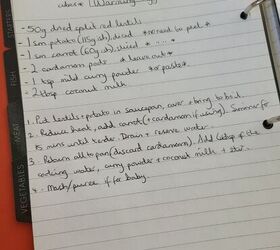 cubes* (Warming
- 50g dried split red lentils
- 1 sm potato (115g ish) diced *no need to peel*
- 1 sm carrot (60g ish) sliced * .. .. .. *
- 2 cardamom pods *leave out*
- 1 tsp mild curry powder *or paste*
- 2 tbsp coconut milk
1. Put lentils + potato in saucepan, cover + bring to boil.
2. Reduce heat, add carrot (+ cardamom if using). Simmer for
15 mins until tender. Drain + reserve water.
3. Return all to pan (discard cardamom). Add 6tbsp of the
cooking water, curry powder + coconut milk + stir.
4. Mash/puree if for baby.
STARTERS
FISH
MEAT
VEGETABLES